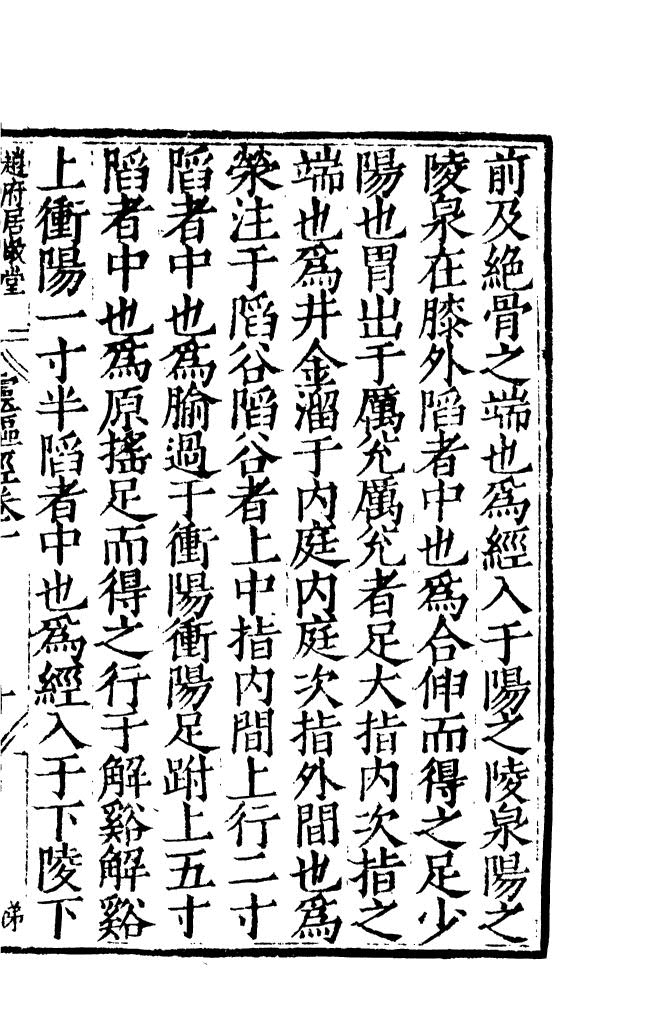 前及絶骨之端也爲經入于陽之陵泉陽之
陵泉在膝外䧟者中也爲合伸而得之足少
陽也胃出于厲兊厲兊者足大指内次指之
端也爲井金溜于内庭内庭次指外間也爲
滎注于䧟谷䧟谷者上中指内間上行二寸
䧟者中也爲腧過于衝陽衝陽足跗上五寸
䧟者中也爲原搖足而得之行于解谿解谿
上衝陽一寸半䧟者中也爲經入于下陵下
趙府居敬堂
靈樞經卷一